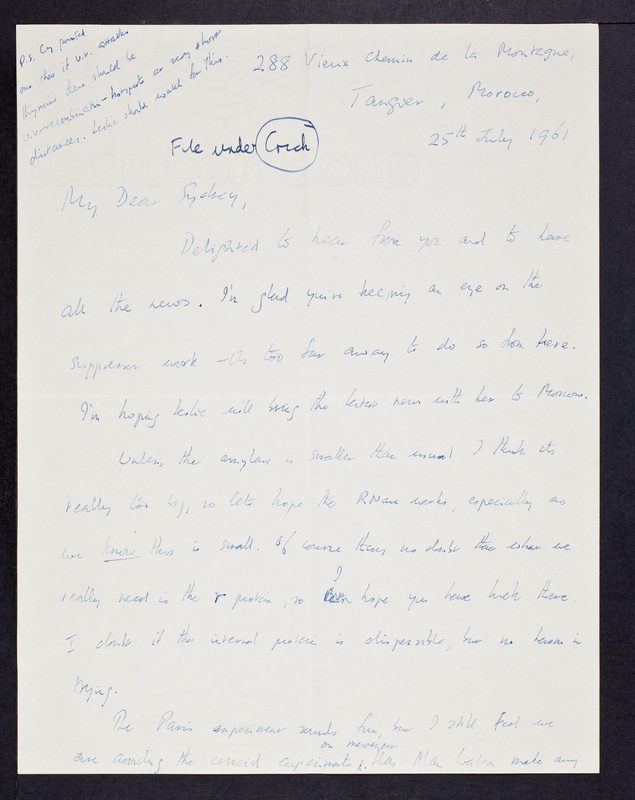 P.S. Cy pointed
out that if u.v. attacks
thymine there should be
u.v. recombination-hotspots at very short
distances. Leslie should watch for this.
288 Vieux Chemin de la Montagne,
Tanger, Morocco,
25th July 1961
File under Crick
My Dear Sydney,
Delighted to hear from you and to have
all the news. I'm glad you're keeping an eye on the
suppressor work - its too far away to do so from here.
I'm hoping Leslie will bring the latest news with her to Moscow.
Unless the amylase is smaller than usual I think its
really too big, so lets hope the RNase works, especially as
we know this is small. Of course theres no doubt that what we
really need is the r protein, so I hope you have luck there.
I doubt if the internal protein is dispensible, but no harm in
trying.
The Paris experiment sounds fun, but I still feel we
are avoiding the crucial experiments on messenger. Has Alan make any